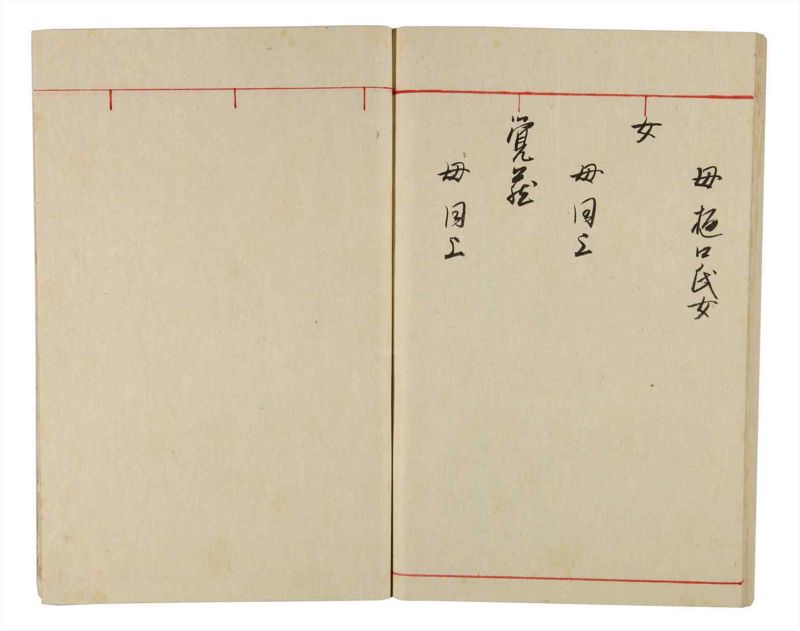 母樋口氏女
女
母同上
覚蔵
母同上